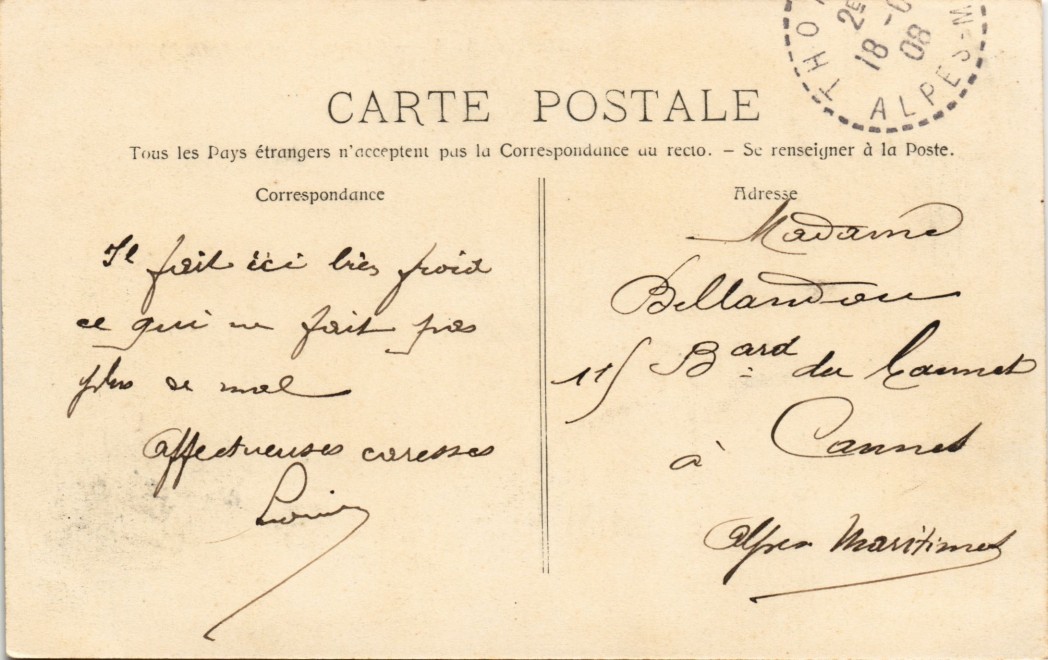 THO
2E
18 -0
08
ALPES-M
CARTE POSTALE
Tous les Pays étrangers n'acceptent pas la Correspondance au recto. – Se renseigner à la Poste.
Correspondance
Il fait ici très froid
ce qui ne fait pas
plus de mal
Affectueuses caresses
Louis
Adresse
Madame
Bellandou
115 Bard du Cannet
à Cannes
Alpes Maritimes